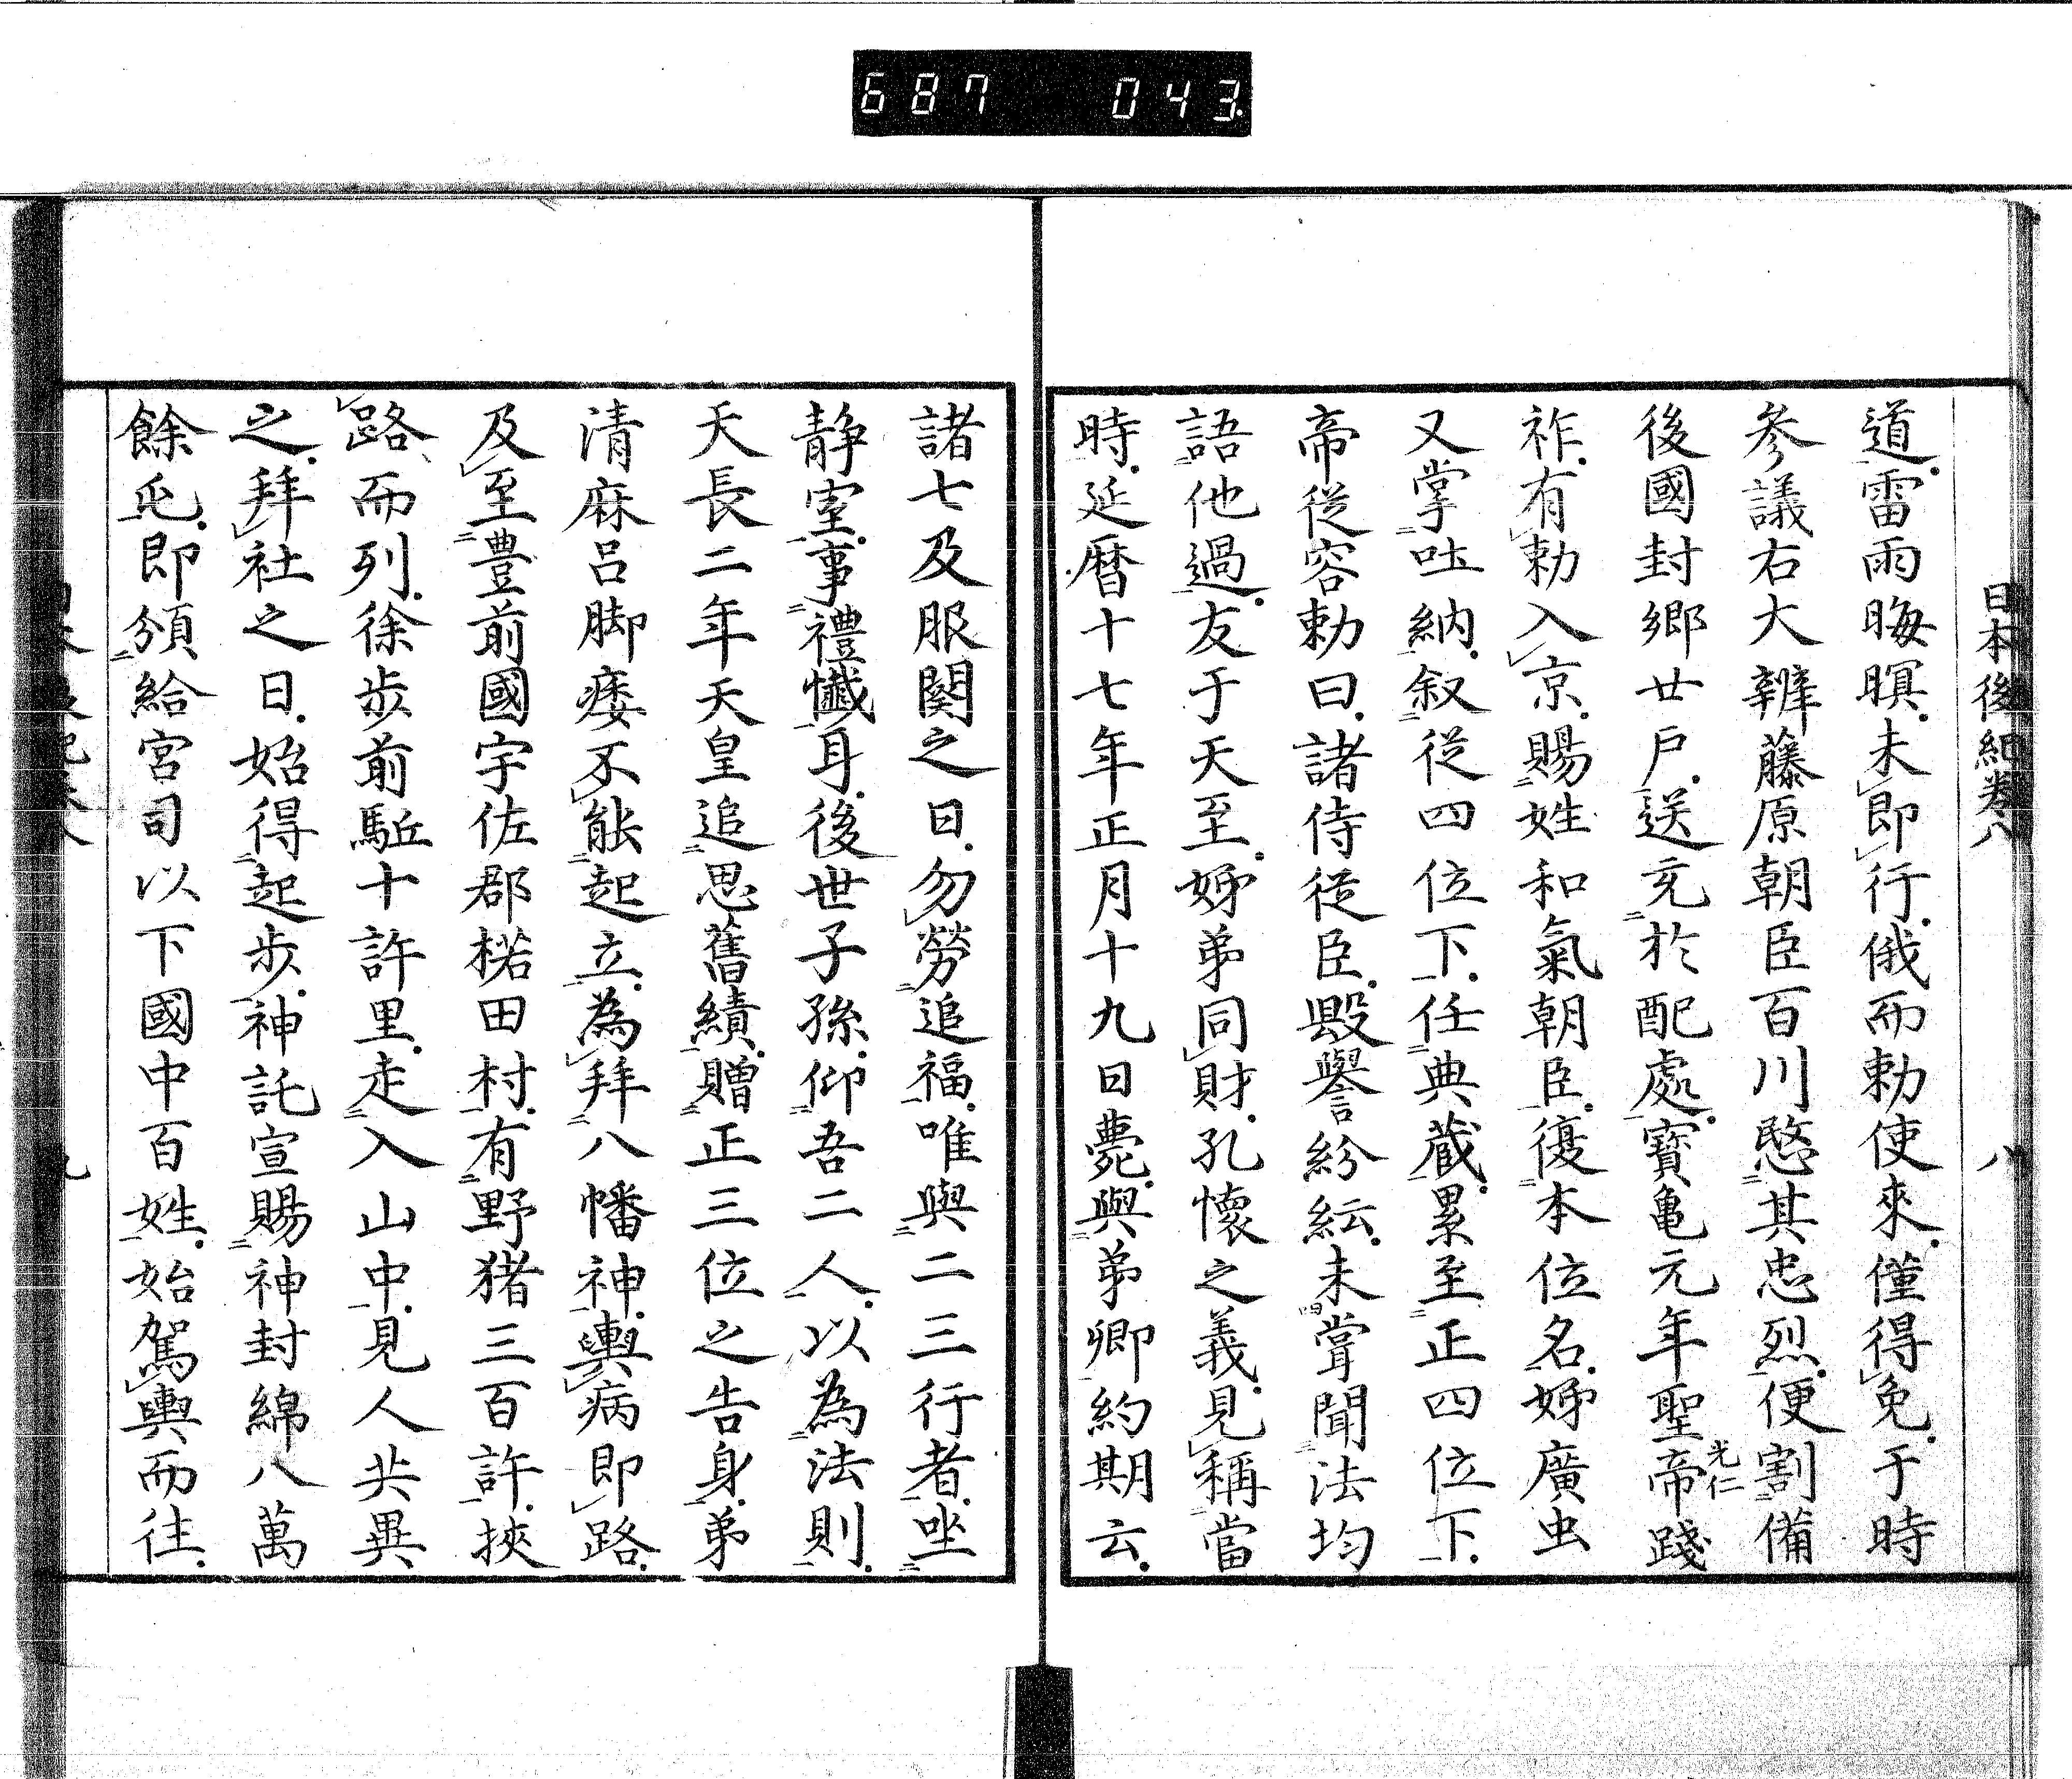 687 043
日本後紀卷八 八
道雷雨晦暝未即行俄而勅使來僅得免于時
參議右大辨藤原朝臣百川愍其忠烈便割備
後國封鄉廿戸送充於配處寶龜元年聖帝踐
光仁
祚有勅入京賜姓和氣朝臣復本位名姊廣虫
又掌吐納叙從四位下任典藏累至正四位下
帝從容勅曰諸侍從臣毀譽紛紜未嘗聞法均
語他過友于天至姊弟同財孔懷之義見稱當
時延曆十七年正月十九日薨與弟卿約期云
諸七及服闋之日勿勞追福唯與二三行者坐
静室事禮懺耳後世子孫仰吾二人以為法則
天長二年天皇追思舊績贈正三位之告身弟
清麻呂脚痿不能起立為拜八幡神輿病即路
及至豊前國宇佐郡楉田村有野猪三百許挾
路而列徐歩前駈十許里走入山中見人共異
之拜社之日始得起歩神託宣賜神封綿八萬
餘屯即頒給宮司以下國中百姓始駕輿而往